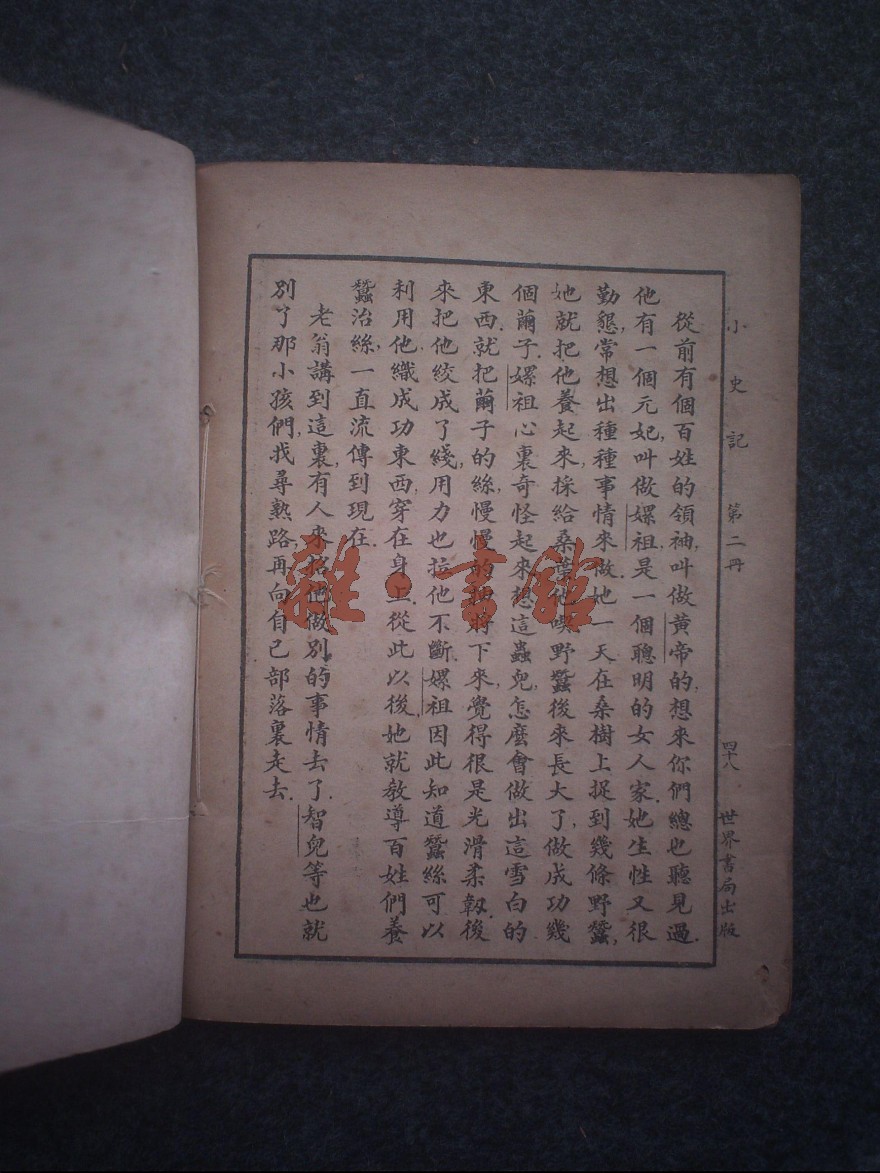 小史記 第二冊 四十八 世界書局出版
從前有個百姓的領袖,叫做黃帝的,想來你們總也聽見過.
他有一個元妃,叫做嫘祖.是一個聰明的女人家.她生性又很
勤懇,常想出種種事情來做.她一天在桑樹上捉到幾條野蠶,
她就把他養起來,採給桑葉他喫.野蠶後來長大了,做成功幾
個繭子.嫘祖心裏奇怪起來,想這蟲兒,怎麼會做出這雪白的
東西.就把繭子的絲,慢慢的抽將下來,覺得很是光滑柔韌.後
來把他絞成了綫,用力也拉他不斷.嫘祖因此知道蠶絲可以
利用他織成功東西,穿在身上.從此以後,她就教導百姓們養
蠶治絲,一直流傳到現在.
老翁講到這裏,有人來招他做別的事情去了.智兒等也就
別了那小孩們,找尋熟路,再向自己部落裏走去.
雜·書館